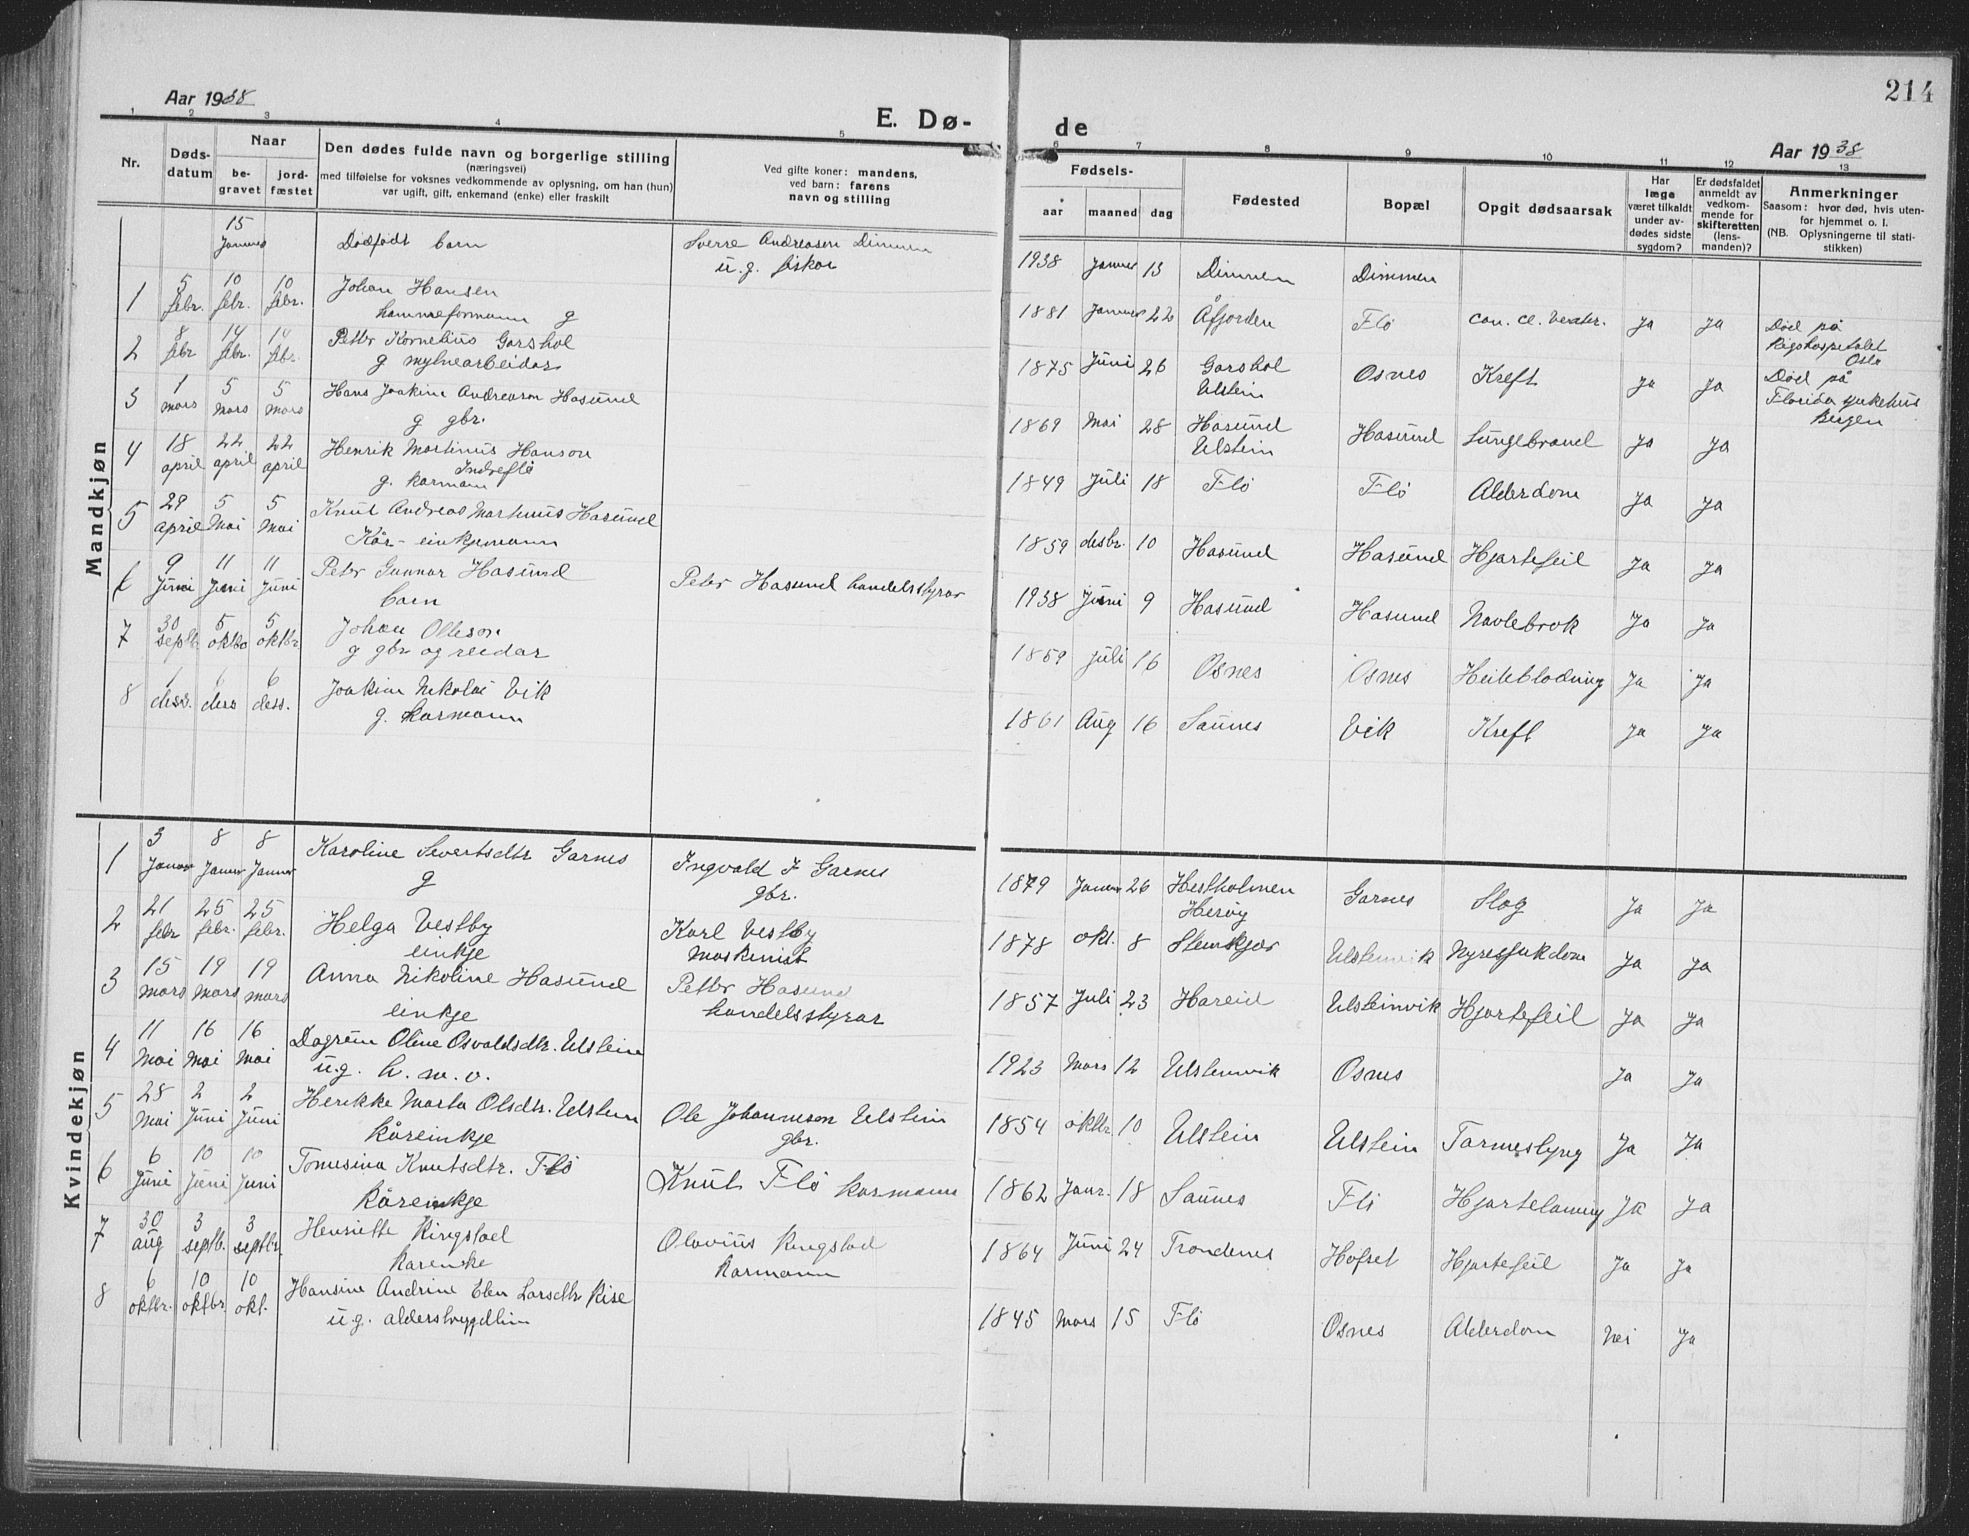 214
Aar 1938
E. Dø-
de
Aar 1938
1 2 3 4 5 6 7 8 9 10 11 12 13
Nr.
Døds-
datum
Naar
be-
gravet
jord-
fæstet
Den dødes fulde navn og borgerlige stilling
(næringsvei)
med tilføielse for voksnes vedkommende av oplysning, om han (hun)
var ugift, gift, enkemand (enke) eller fraskilt
Ved gifte koner: mandens,
ved barn: farens
navn og stilling
Fødsels-
aar maaned dag
Fødested
Bopæl
Opgit dødsaarsak
Har
læge
været tilkaldt
under av-
dødes sidste
sygdom?
Er dødsfaldet
anmeldt av
vedkom-
mende for
skifteretten
(lens-
manden)?
Anmerkninger
Saasom: hvor død, hvis uten-
for hjemmet o. l.
(NB. Oplysningerne til stati-
stikken)
Mandkjøn
15 Januar Dødfødt barn Sverre Andreasen Dimmen u.g. fiskar 1938 Januar 13 Dimmen Dimmen
1 5 febr. 10 febr. 10 febr. Johan Hansen
g 1881 Januar 22 Åfjorden Flø Ja Ja Død på Rigshospitalet Oslo
2 8 febr 14 febr. 14 febr. Petter Kornelius Garshol
g mylnearbeidar 1875 Juni 26 Garshol Ulstein Osnes Kreft Ja Ja Død på Florida sjukehus Bergen
3 1 mars 5 mars 5 mars Hans Joakim Andreason Hasund
g gbr. 1869 Mai 28 Hasund Ulstein Hasund Lungebrand Ja Ja
4 18 april 22 april 22 april Henrik Martinus Hanson Indreflø
g. karmann 1849 Juli 18 Flø Flø Alderdom Ja Ja
5 29 april 5 Mai 5 Mai Knut Andreas Martinus Hasund
Kår-einkjemann 1859 desbr. 10 Hasund Hasund Hjartefeil Ja Ja
6 9 Juni 11 Juni 11 Juni Peter Gunnar Hasund
barn Peter Hasund handelsstyrar 1938 Juni 9 Hasund Hasund Navlebrok Ja Ja
7 30 septb. 5 oktbr 5 oktbr. Johan Olleson
g gbr og reidar 1859 Juli 16 Osnes Osnes Heileblødning Ja Ja
8 1 desb. 6 6 dess. Joakim Nikolai Vik
g. karmann 1861 Aug 16 Saunes Vik Kreft Ja Ja
Kvindekjøn
1 3 Januar 8 Januar 8 Januar Karoline Severtsdtr Garnes
g Ingvald J Garnes gbr. 1879 Januar 26 Hestholmen Herøy Garnes Slag Ja Ja
2 21 febr 25 febr. 25 febr. Helga Vestby
einkje Karl Vestby Maskinist 1878 okt. 8 Steinkjær Ulsteinvik Nyresjukdom Ja Ja
3 15 mars 19 mars 19 mars Anna Nikoline Hasund
einkje Petter Hasund handelsstyrar 1857 Juli 23 Hareid Ulsteinvik Hjartefeil Ja Ja
4 11 Mai 16 Mai 16 Mai Dagrun Oline Osvaldsdtr. Ulstein
u.g. h. m. o. 1923 Mars 12 Ulsteinvik Osnes Ja Ja
5 28 Mai 2 Juni 2 Juni Herikke Marta Olsdtr. Ulstein
kåreinkje Ole Johanneson Ulstein gbr. 1854 oktbr 10 Ulstein Ulstein Tarmeslyng Ja Ja
6 6 Juni 10 Juni 10 Juni Tomesina Knutsdtr. Flø
kåreinkje Knut Flø karmann 1862 Janr. 18 Saunes Flø Hjartelaming Ja Ja
7 30 aug 3 septb. 3 septbr. Henriette Ringstad
Karenke Olavius Ringstad Karmann 1864 Juni 24 Trondenes Hofset Hjartefeil Ja Ja
8 6 oktbr. 10 oktbr. 10 okt. Hansine Andrine Elen Larsdtr Rise
u.g. alderstrygdlin 1845 Mars 15 Flø Osnes Alderdom Nei Ja